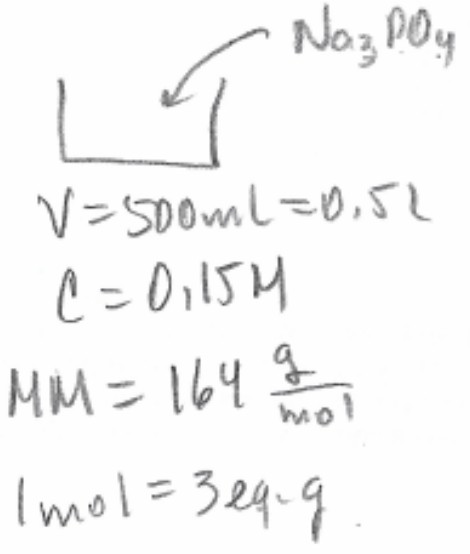 Na₃PO₄
V = 500mL = 0,5L
C = 0,15M
MM = 164 g/mol
1mol = 3eq-g.